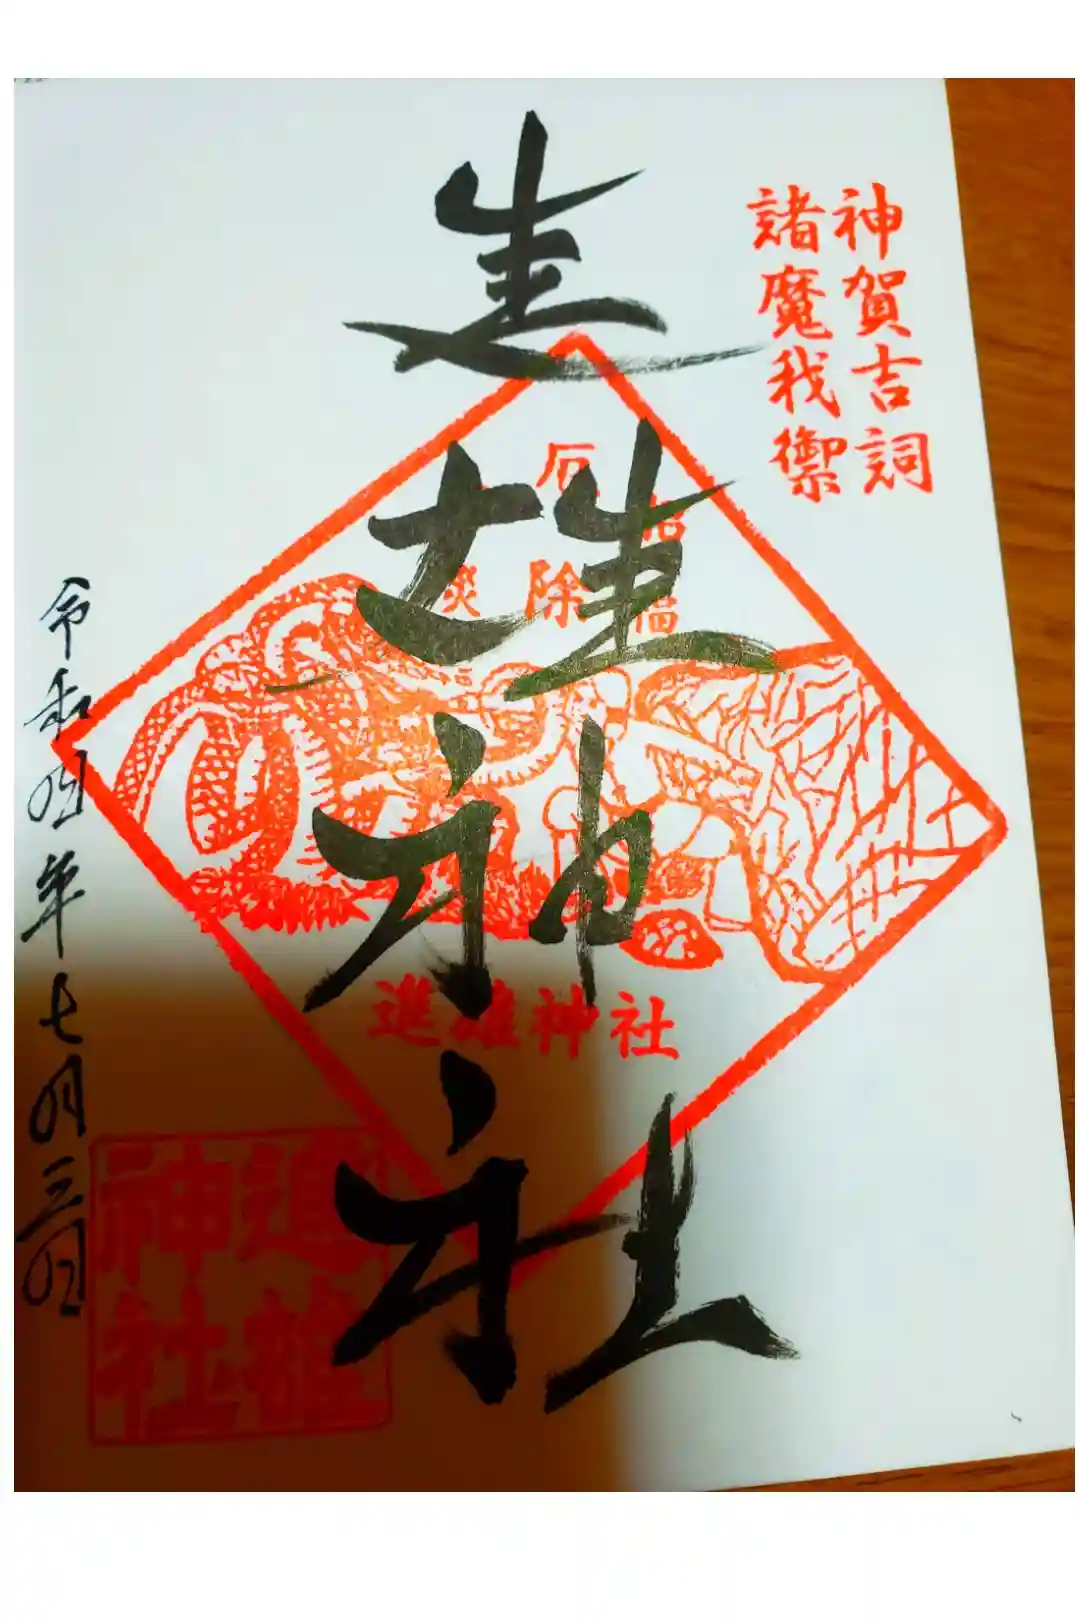 神賀吉詞
諸魔我禦
進雄神社
厄除
進雄神社
進雄
神社
令和四年七月三日